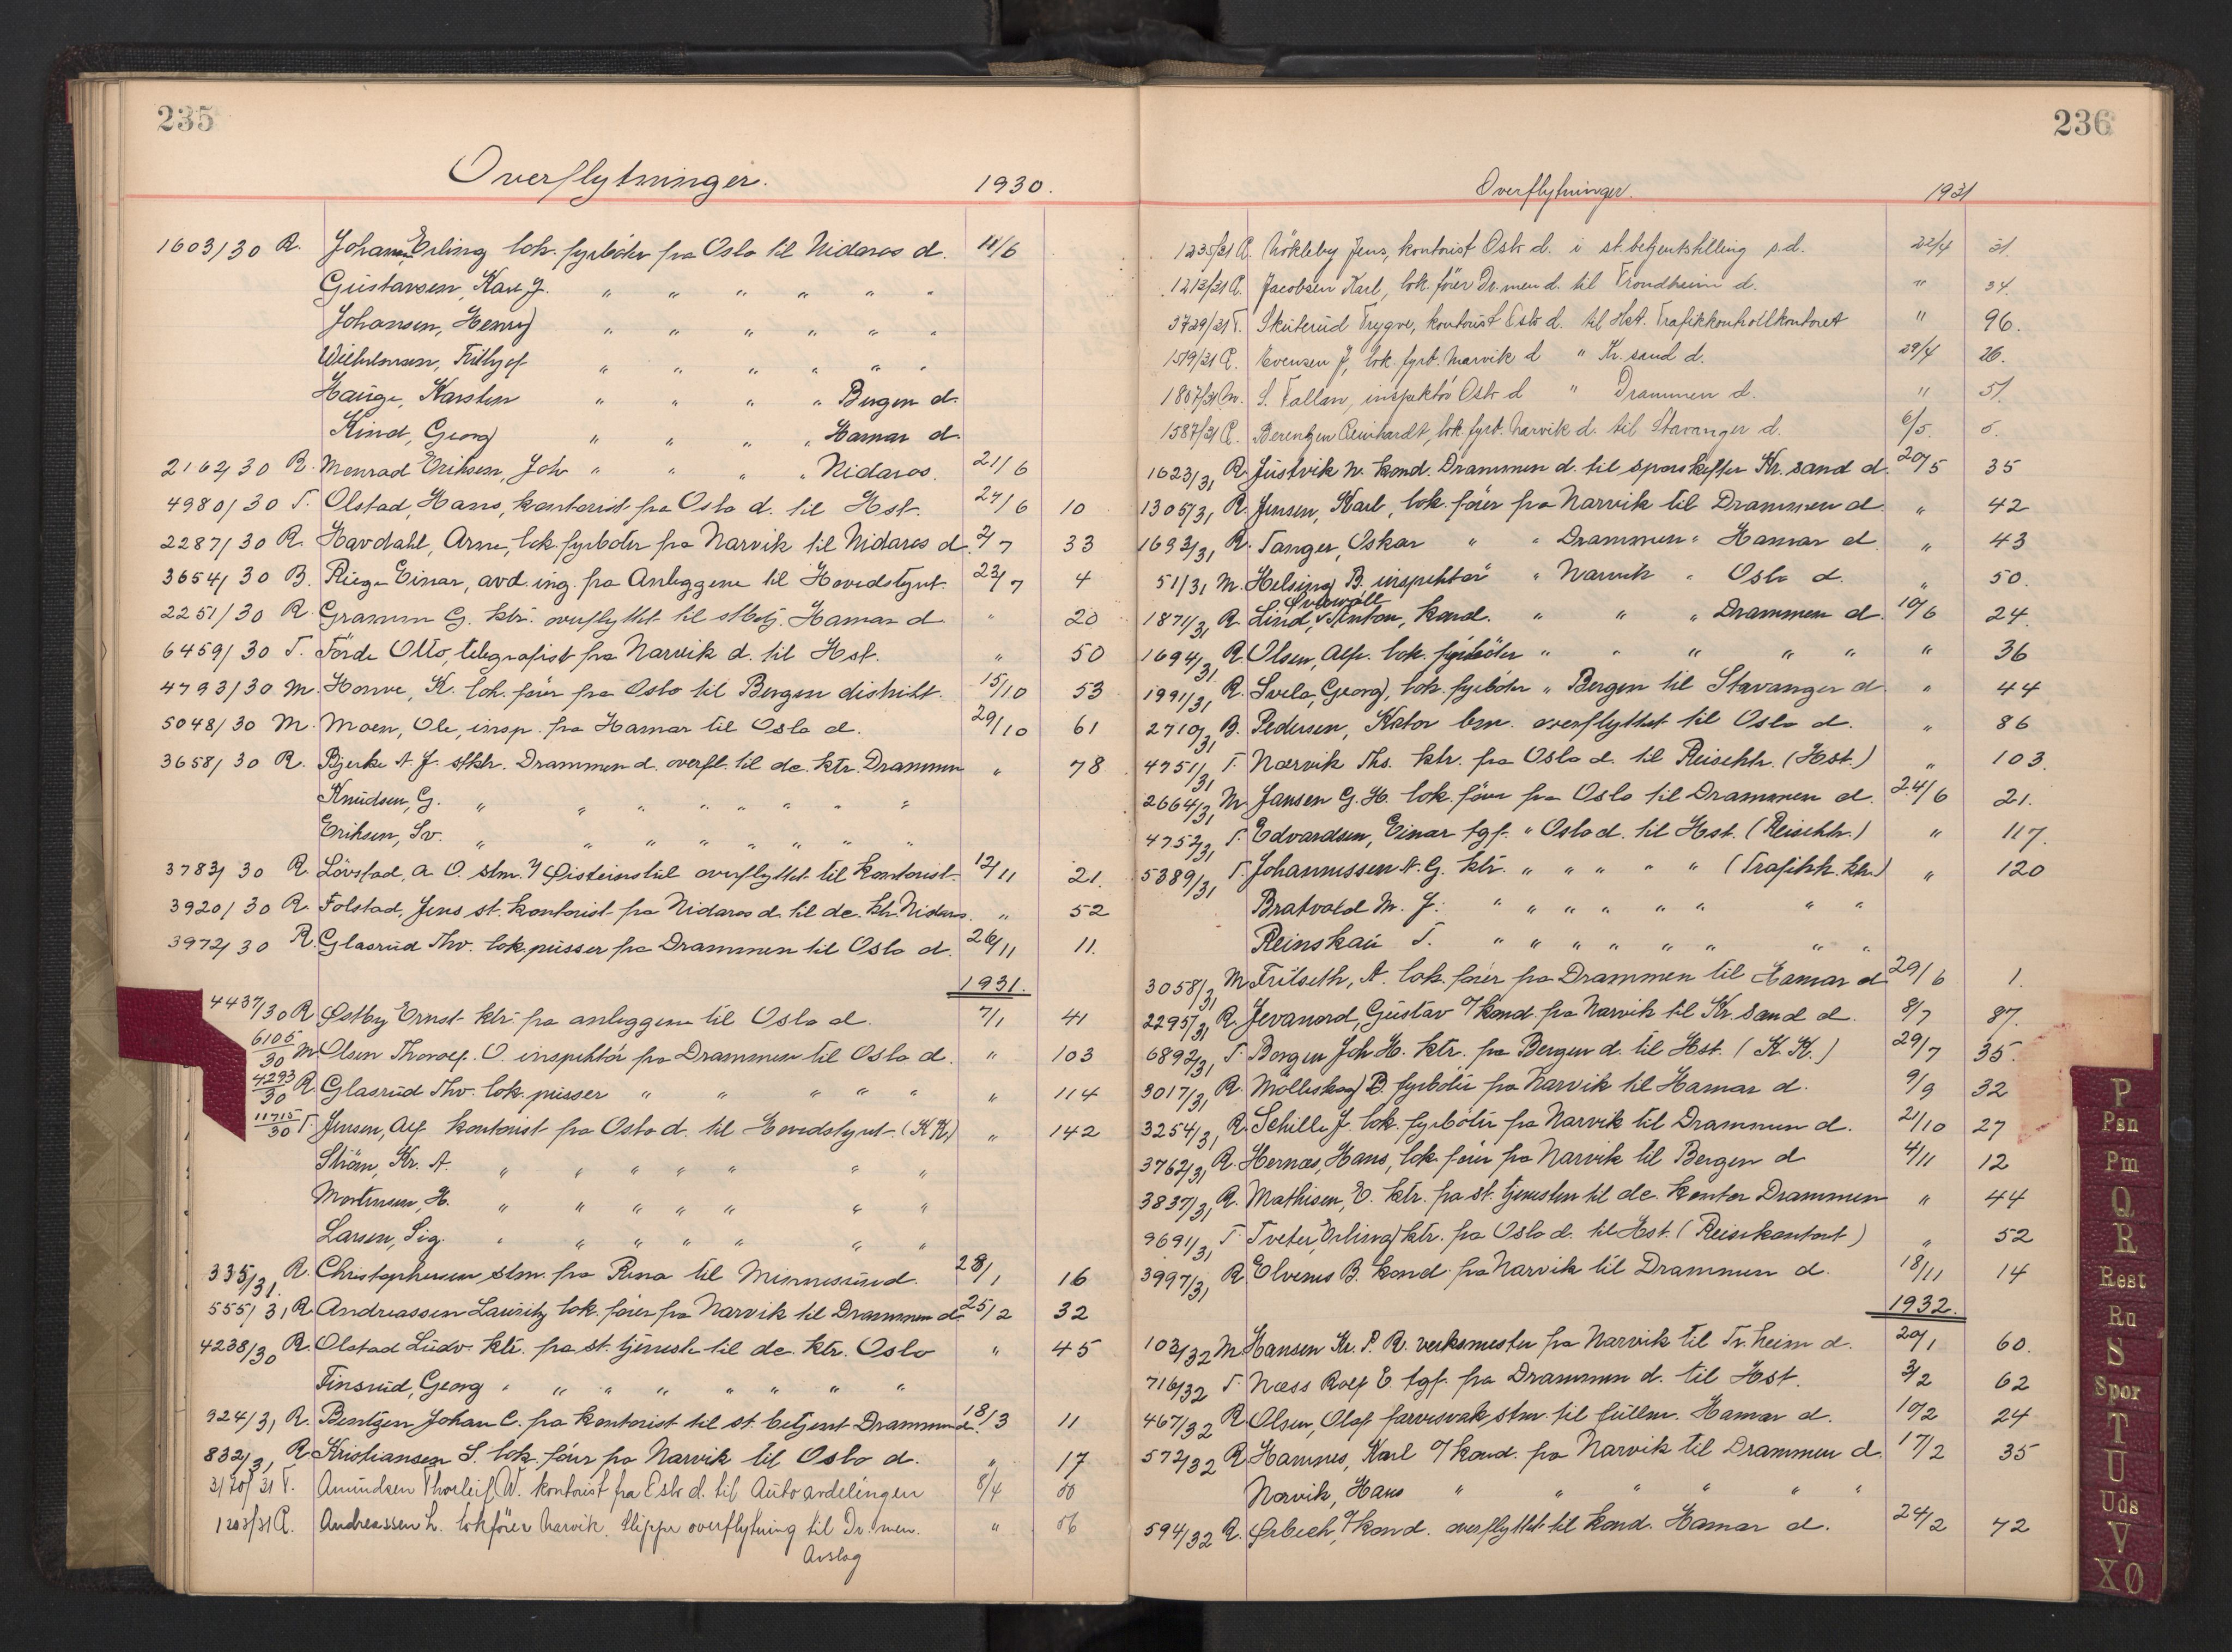 235
Overflytninger. 1930.
1603/30 R. Johansen, Erling lok. fyrbøter fra Oslo til Nidaros d. 11/6
Gustavsen, Karl J. " " " " " "
Johansen, Henry " " " " " "
Wilhelmsen, Frithjof " " " " " "
Hauge, Karsten " " " " Bergen d.
Kind, Georg " " " " Hamar d.
2162/30 R. Menrad Eriksen, Joh " " " " Nidaros. 21/6
4980/30 T. Olstad, Hans, kontorist fra Oslo d. til Hst. 24/6 10
2287/30 R. Havdahl, Arne, lok. fyrbøter fra Narvik til Nidaros d. 2/7 33
3654/30 B. Riege Einar, avd. ing. fra Anleggene til Hovedstyret. 23/7 4
2251/30 R. Gramm G. ktr. overflyttet til stbetj. Hamar d. " 20
6459/30 T. Förde Otto, telegrafist fra Narvik d. til Hst. " 50
4793/30 M. Horve, K. lok. fører fra Oslo til Bergen distrikt. 15/10 53
5048/30 M. Moen, Ole, insp. fra Hamar til Oslo d. 29/10 61
3658/30 R. Bjerke A. J. stktr. Drammen d. overfl. til dc. ktr. Drammen " 78
Knudsen, G. " " " " " " " "
Eriksen, Sv. " " " " " " " "
3783/30 R. Lövstad, A. O. stm. v/ Øisteinstul overflyttet til kontorist. 12/11 21.
3920/30 R. Folstad, Jens st. kontorist fra Nidaros d. til dc. ktr. Nidaros. " 52
3972/30 R. Glasrud Thv. lok. pusser fra Drammen til Oslo d. 26/11 11.
1931.
4437/30 R. Østby Ernst ktr. fra anleggene til Oslo d. 7/1 41
6105/30 M. Olsen Thorolf. O. inspektør fra Drammen til Oslo d. " 103
4293/30 R. Glasrud Thv. lok. pusser " " " " " " 114
11715/30 T. Jensen, Alf kontorist fra Oslo d. til Hovedstyret (KK) " 142
Strøm, Kr. A. " " " " " " "
Mortensen, H. " " " " " " "
Larsen, Sig. " " " " " " "
335/31. R. Christophersen stm. fra Rena til Minnesund. 28/1 16
555/31 R. Andreassen Lauritz lok. fører fra Narvik til Drammen d. 25/2 32
4238/30 R. Olstad Ludv. ktr. fra st. tjeneste til dc. ktr. Oslo " 45
Finsrud, Georg " " " " " " " "
924/31 R. Bentzen Johan C. fra kontorist til st. betjent Drammen d. 18/3 11
832/31 R. Kristiansen S. lok. fører fra Narvik til Oslo d. " 17
3170/31 T. Amundsen Thorleif W. kontorist fra Oslo d. til Autoavdelingen 8/4 50
1203/31 R. Andreassen L. lokfører Narvik. Slipper overflytning til Dr.men. " 56
Avslag
236
Overflytninger. 1931
1235/31 R. Nökleby Jens, kontorist Oslo d. i st.betjentstilling s.d. 22/4 31.
1213/31 R. Jacobsen Karl, lok. förer Dr.men d. til Trondheim d. " 34.
3729/31 T. Skuterud Trygve, kontorist Oslo d. til Hst. Trafikkontrollkontoret " 96.
1519/31 R. Evensen J, lok. fyrb. Narvik d " Kr. sand d. 29/4 26.
1807/31 M. S. Fallan, inspektör Oslo d " Drammen d. " 51.
1587/31 R. Berentzen Reinhardt, lok. fyrb. Narvik d. til Stavanger d. 6/5. 5.
1623/31 R. Justvik N. kond. Drammen d. til sporskifter Kr. sand d. 20/5 35
1305/31 R. Jensen, Karl, lok. fører fra Narvik til Drammen d. " 42
1693/31 R. Tanger, Oskar " " Drammen " Hamar d. " 43
51/31 M. Helsing B. inspektør " Narvik " Oslo d. " 50.
1871/31 R. Lind, Anton, kond. " " " Drammen d. 10/6 24.
1694/31 R. Olsen, Alf. lok. fyrbøter " " " " " " 36
1991/31 R. Svela, Georg, lok. fyrbøter " Bergen til Stavanger d. " 44
2710/31 B. Pedersen, Kator bm. overflyttet til Oslo d. " 86
4751/31 T. Narvik Ths. ktr. fra Oslo d. til Reisektr. (Hst.) " 103.
2664/31 M. Jansen G. H. lok. fører fra Oslo til Drammen d. 24/6 21.
4752/31 T. Edvardsen, Einar tgf. " Oslo d. til Hst. (Reisektr.) " 117.
5389/31 T. Johannessen A. G. ktr. " " " " " (Trafikk. ktr.) " 120
Bratvold M. J. " " " " " " " "
Reinskau T. " " " " " " " "
3058/31 M. Fritseth, A. lok. fører fra Drammen til Hamar d. 29/6 1.
2295/31 R. Jevanord, Gustav o/kond. fra Narvik til Kr. sand d. 8/7 87.
6892/31 T. Borgen Joh H. ktr. fra Bergen d. til Hst. (K. K.) 29/7 35.
3017/31 R. Mölleskog B. fyrbøter fra Narvik til Hamar d. 9/9 32
3254/31 R. Schille J. lok. fyrbøter fra Narvik til Drammen d. 21/10 27
3762/31 R. Hernæs, Hans, lok. fører fra Narvik til Bergen d 4/11 12
3837/31 R. Mathisen, E. ktr. fra st. tjenesten til dc. kontor Drammen " 44
9691/31 T. Tveter, Erling ktr. fra Oslo d. til Hst. (Reisekontoret) " 52
3997/31 R. Elvenes B. kond. fra Narvik til Drammen d. 18/11 14
1932.
103/32 M. Hansen Kr. P. R. verksmester fra Narvik til Tr. heim d. 20/1 60.
716/32 T. Næss Rolf E. tgf. fra Drammen d. til Hst. 3/2 62
467/32 R. Olsen, Olaf farvesvak stm. til fullm. Hamar d. 10/2 24
572/32 R. Hamnes, Karl o/kond. fra Narvik til Drammen d. 17/2 35
Norvik, Hans " " " " " "
594/32 R. Ørbech, o/kond. overflyttet til kond. Hamar d. 24/2 72
P
Psn
Pm
Q
R
Rest
Ru
S
Spor
T
U
Uds
V
XØ